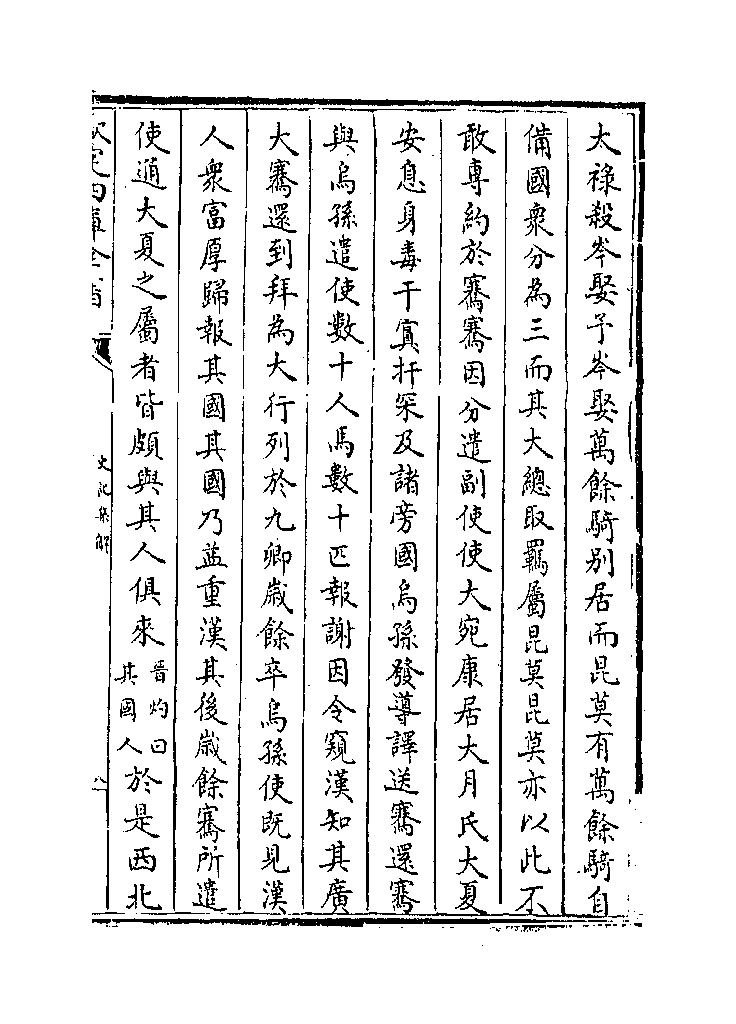 大祿殺岑娶予岑娶萬餘騎别居而昆莫有萬餘騎自
備國衆分為三而其大總取羈屬昆莫昆莫亦以此不
敢專約於騫騫因分遣副使使大宛康居大月氏大夏
安息身毒于窴扜罙及諸旁國烏孫發導譯送騫還騫
與烏孫遣使數十人馬數十匹報謝因令窺漢知其廣
大騫還到拜為大行列於九卿歲餘卒烏孫使既見漢
人衆富厚歸報其國其國乃益重漢其後歲餘騫所遣
使通大夏之屬者皆頗與其人俱來晉灼曰其國人於是西北
欽定四庫全書
史記集解